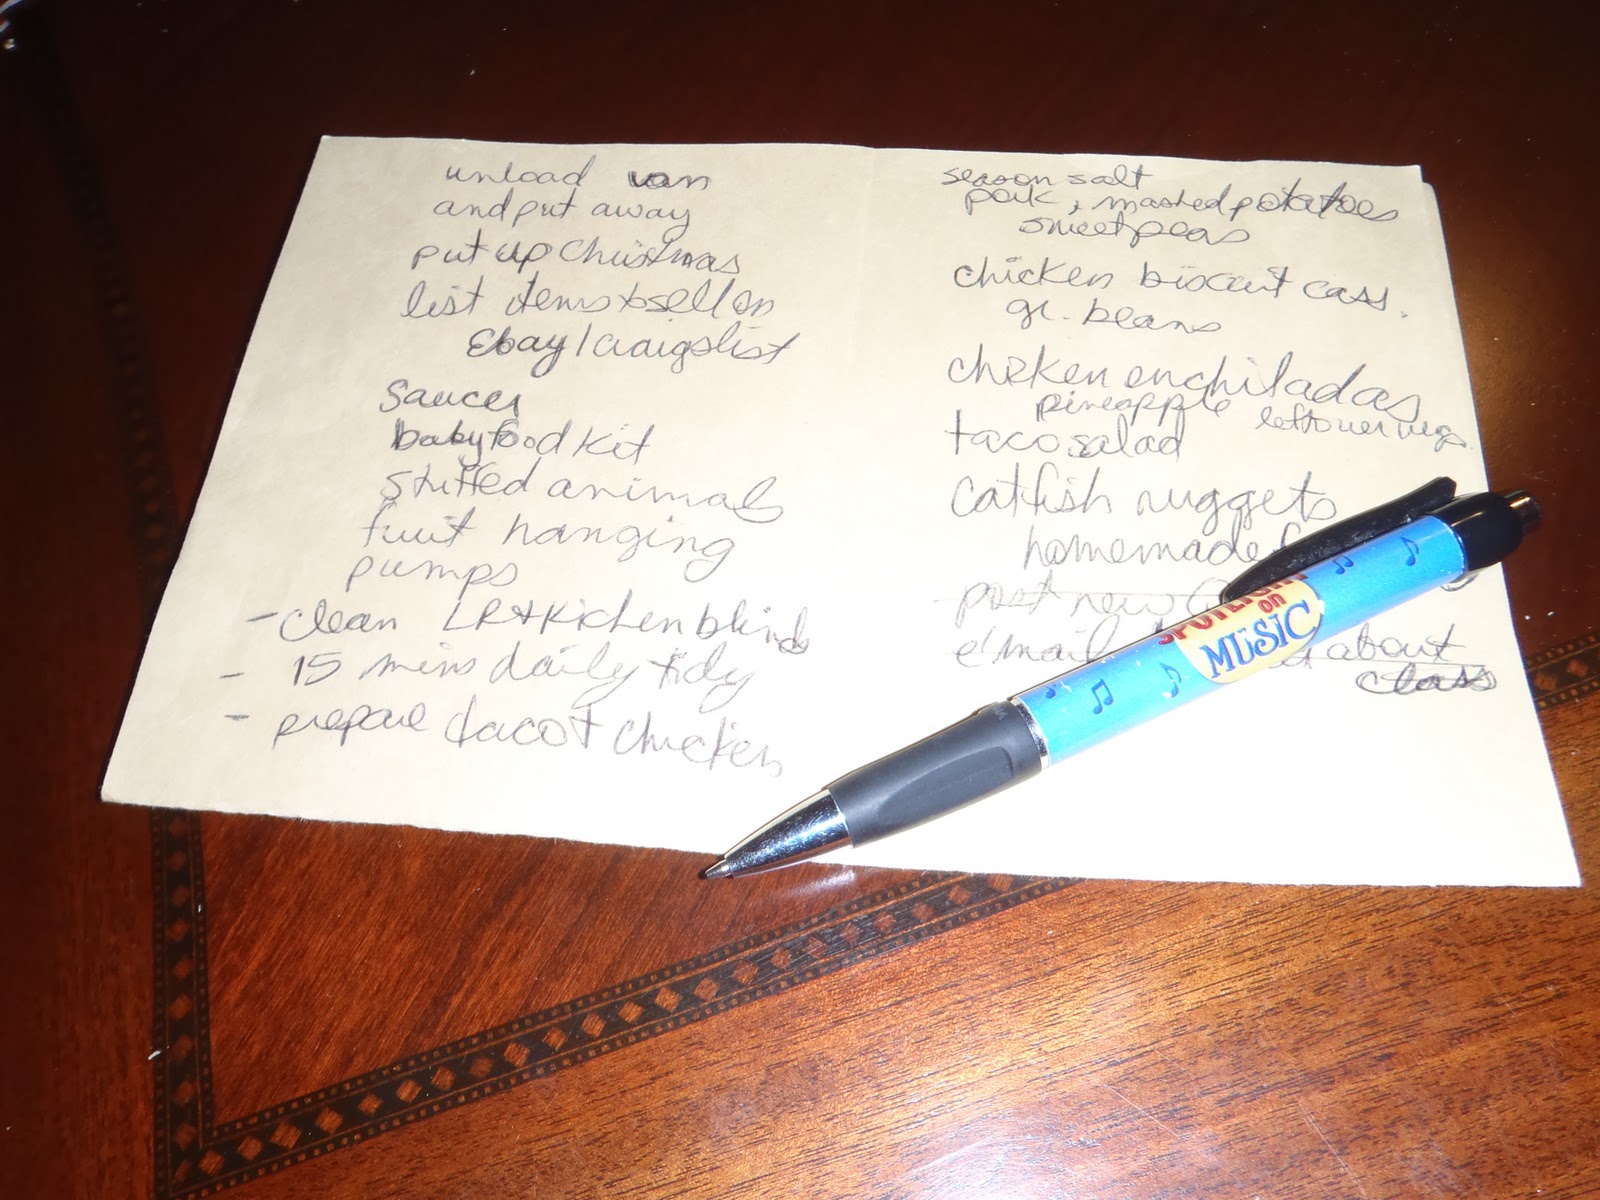 unload van
and put away
put up Christmas
list items to sell on
Ebay/craigslist
saucer
babyfood kit
stuffed animals
fruit hanging
pumps
- clean LR + kichen blinds
- 15 mins daily tidy
- prepare taco + chicken
season salt
pork, mashed potatoes
sweet peas
chicken biscuit cass.
gr. beans
chicken enchiladas
pineapple leftover vegs.
taco salad
catfish nuggets
homemade
post new
e'mail about
class
SPOTLIGHT
on
MUSIC